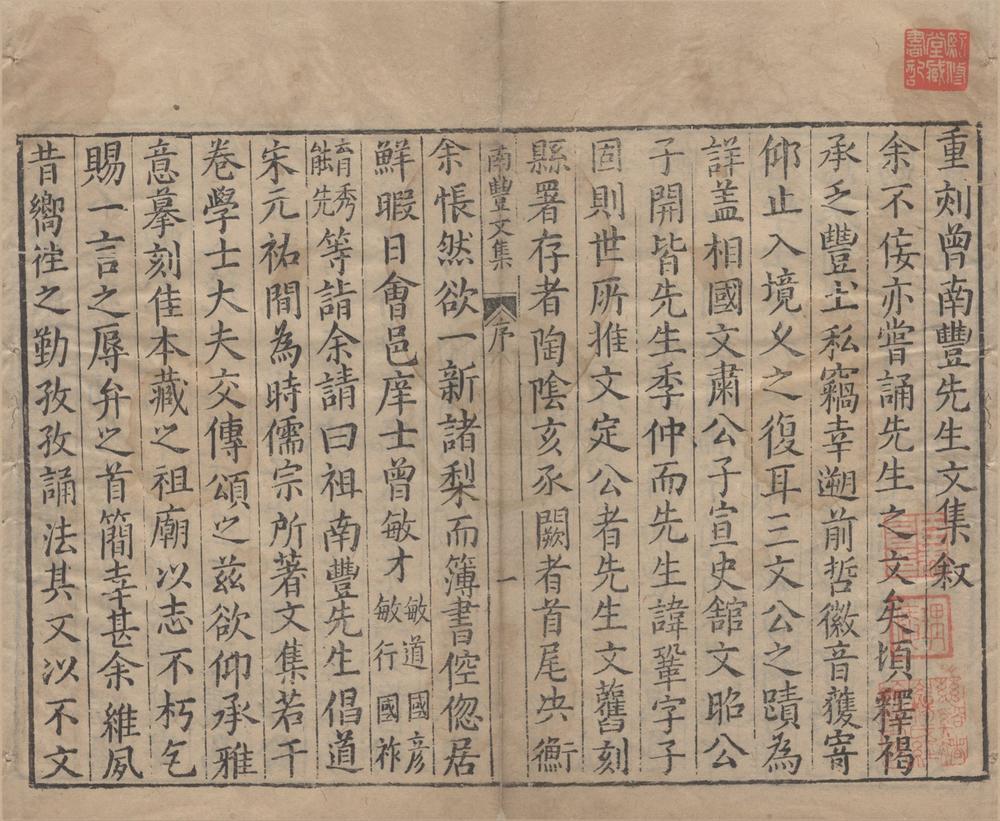 重刻曾南豐先生文集敘
余不佞亦嘗誦先生之文矣頃釋褐
承乏豐土私竊幸遡前哲徽音獲寄
仰止入境乂之復耳三文公之蹟為
詳盖相國文肅公子宣史舘文昭公
子開皆先生季仲而先生諱鞏字子
固則世所推文定公者先生文舊刻
縣署存者陶陰亥豕闕者首尾共衡
南豐文集 序 一
余悵然欲一新諸梨而簿書倥偬居
鮮暇日會邑庠士曾敏才敏道敏行國彦國祚
育秀能先等詣余請曰祖南豐先生倡道
宋元祐間為時儒宗所著文集若干
卷學士大夫交傳頌之兹欲仰承雅
意摹刻佳本藏之祖廟以志不朽乞
賜一言之辱弁之首簡幸甚余維夙
昔嚮徃之勤孜孜誦法其又以不文